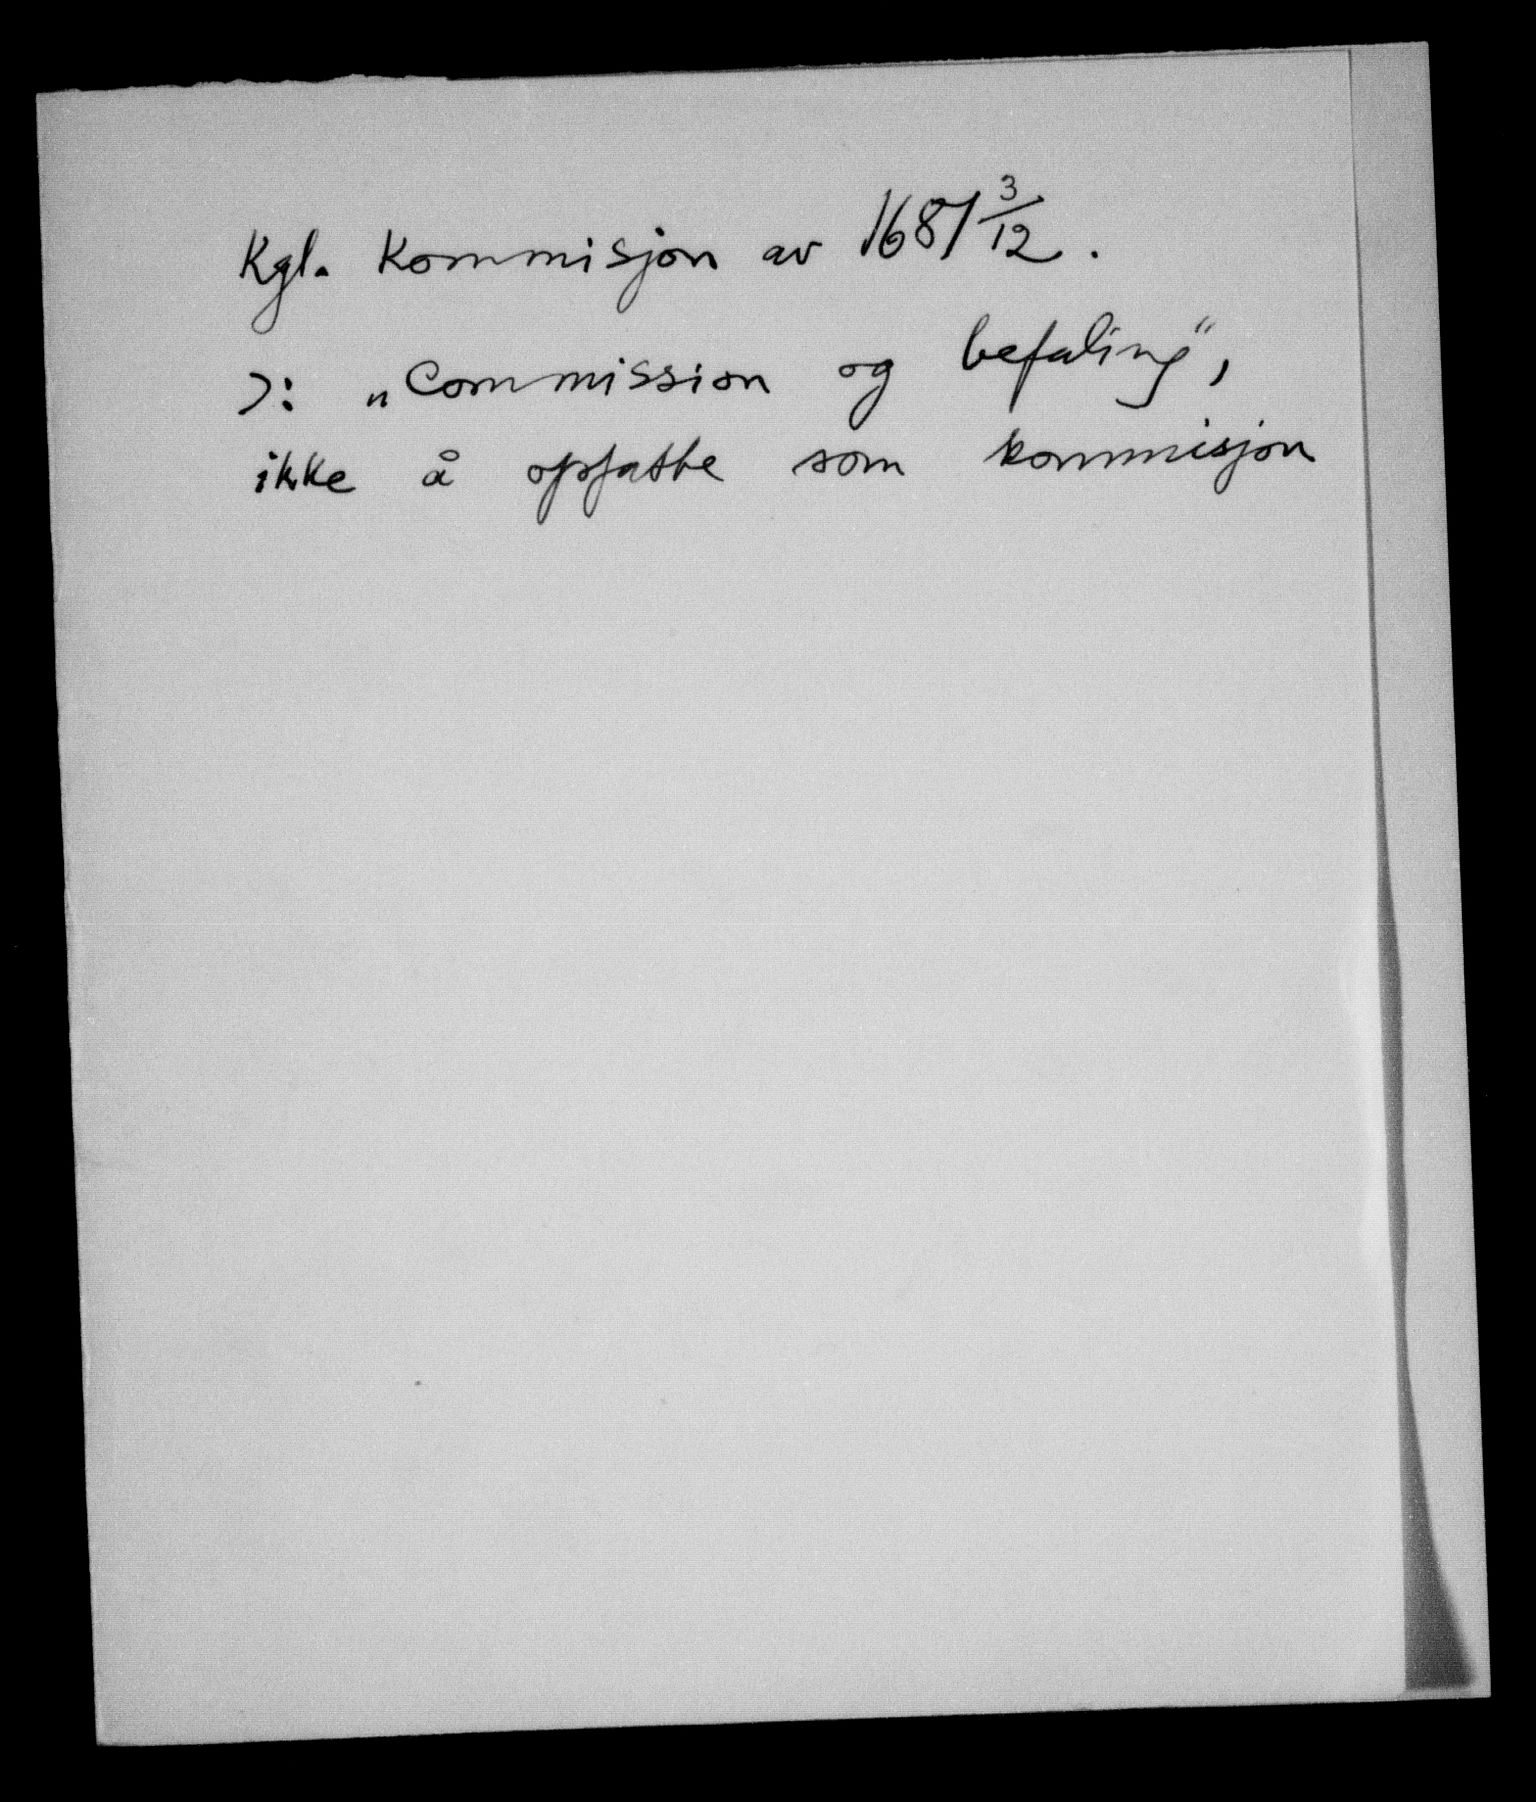 Kgl. Kommisjon av 1687 3/12.
ɔ: „Commission og befaling“,
ikke å opfatte som kommisjon